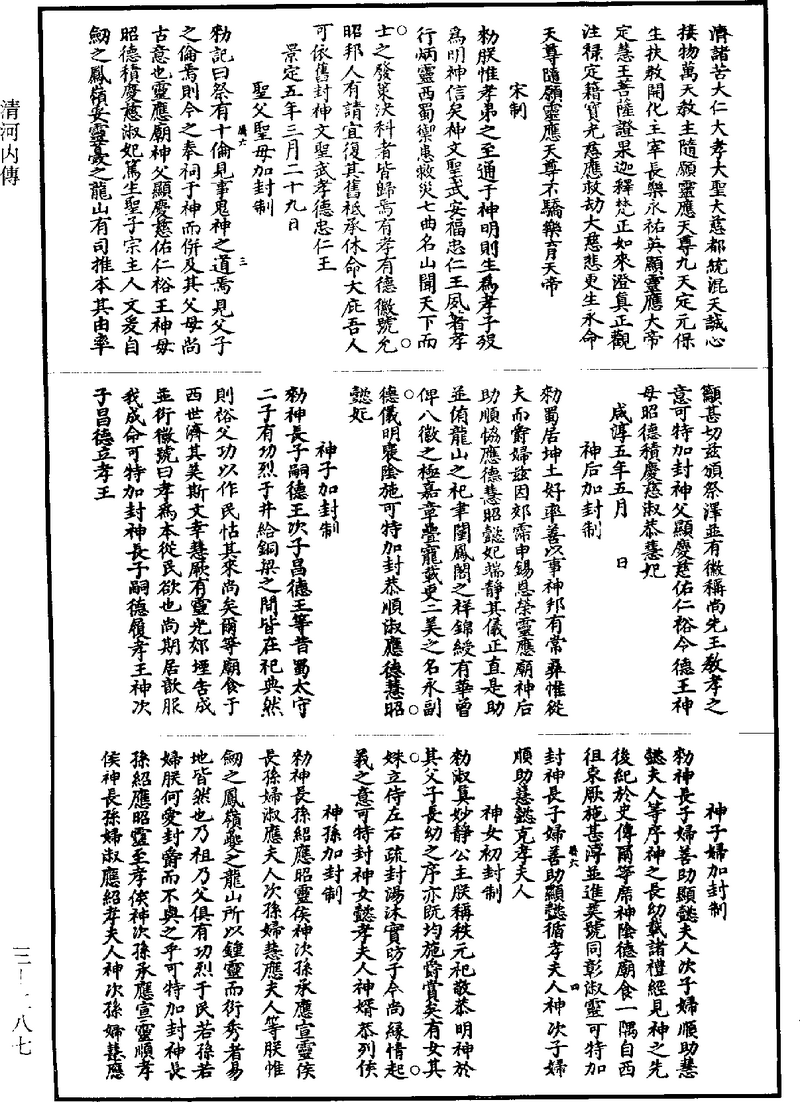 清河內傳
濟諸苦大仁大孝大聖大慈都統混天誠心
接物萬天教主隨願靈應天尊九天定元保
生扶教開化主宰長樂永祐英顯靈應大帝
定慧王菩薩證果迦釋梵正如來澄真正觀
注祿定籍寶光慈應救劫大慈悲更生永命
天尊隨願靈應天尊不驕樂育天帝
宋制
勑朕惟孝弟之至通于神明則生為孝子歿
為明神信矣神文聖武安福忠仁王夙著孝
行炳靈西蜀禦患救災七曲名山聞天下而
士之發策決科者皆歸焉有孝有德徽號允
昭邦人有請宜復其舊祗承休命大庇吾人
可依舊封神文聖武孝德忠仁王
景定五年三月二十九日
聖父聖母加封制
勑記曰祭有十倫見事鬼神之道焉見父子
之倫焉則今之奉祠于神而併及其父母尚
古意也靈應廟神父顯慶慈佑仁裕王神母
昭德積慶慈淑妃篤生聖子宗主人文爰自
劒之鳳嶺妥靈夔之龍山有司推本其由率
籲甚切兹頒祭澤並有徽稱尚先王敎孝之
意可特加封神父顯慶慈佑仁裕令德王神
母昭德積慶慈淑恭慧妃
咸淳五年五月　日
神后加封制
勑蜀居坤土好率善以事神邦有常彝惟從
夫而爵婦兹因郊霈申錫恩榮靈應廟神后
助順協應德慧昭懿妃端靜其儀正直是助
並侑龍山之祀聿聞鳳閣之祥錦綬有華曾
俾八徽之極嘉章疊寵載更二美之名永副
德儀明褒陰施可特加封恭順淑應德慧昭
懿妃
神子加封制
勑神長子嗣德王次子昌德王等昔蜀太守
二子有功烈于井絡銅梁之間皆在祀典然
則裕父功以作民怙其來尚矣爾等廟食于
西世濟其美斯文幸慧厥有靈光郊堙告成
並衍徽號曰孝為本從民欲也尚期居歆服
我成命可特加封神長子嗣德履孝王神次
子昌德立孝王
神子婦加封制
勑神長子婦善助顯懿夫人次子婦順助慧
懿夫人等序神之長幼載諸禮經見神之先
後紀於史傳爾等席神陰德廟食一隅自西
徂東厥施甚溥並進美號同彰淑靈可特加
封神長子婦善助顯懿循孝夫人神次子婦
順助慧懿克孝夫人
神女初封制
勑淑真妙靜公主朕稱秩元祀敬恭明神於
其父子長幼之序亦既均施爵賞矣有女其
姝立侍左右疏封湯沐實昉于今尚緣情起
義之意可特封神女懿孝夫人神婿恭列侯
神孫加封制
勑神長孫紹應昭靈侯神次孫承應宣靈侯
長孫婦淑應夫人次孫婦慧應夫人等朕惟
劒之鳳嶺夔之龍山所以鍾靈而衍秀者易
地皆然也乃祖乃父俱有功烈于民若孫若
婦朕何愛封爵而不與之乎可特加封神長
孫紹應昭靈至孝侯神次孫承應宣靈順孝
侯神長孫婦淑應紹孝夫人神次孫婦慧應